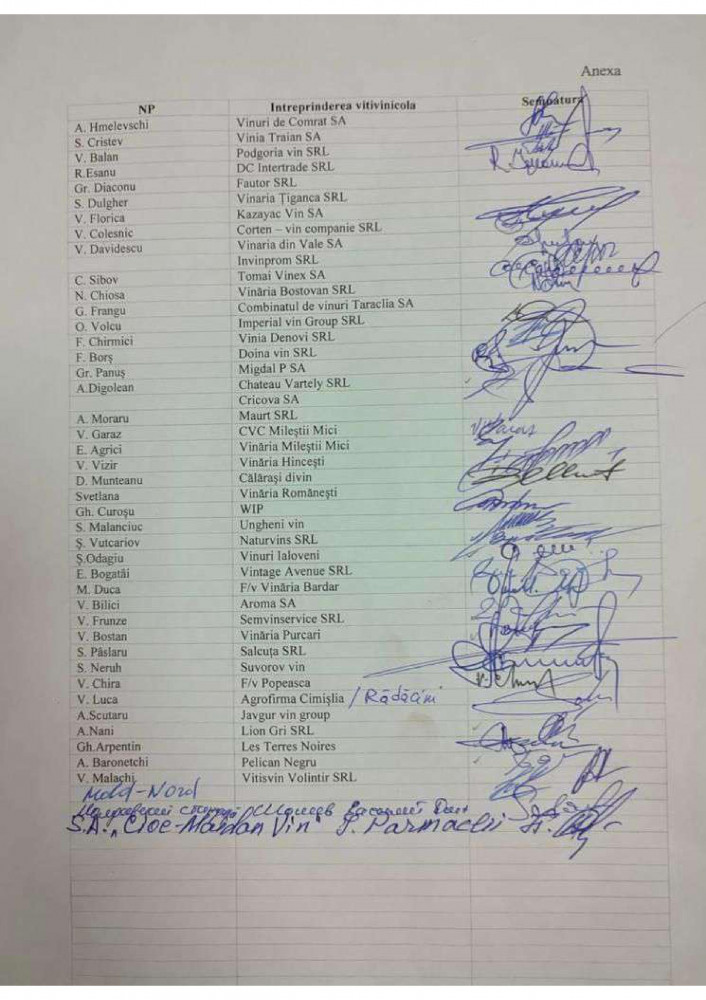 Anexa
NP Intreprinderea vitivinicola Semnătura
A. Hmelevschi Vinuri de Comrat SA
S. Cristev Vinia Traian SA
V. Balan Podgoria vin SRL
R.Esanu DC Intertrade SRL
Gr. Diaconu Fautor SRL
S. Dulgher Vinaria Țiganca SRL
V. Florica Kazayac Vin SA
V. Colesnic Corten – vin companie SRL
V. Davidescu Vinaria din Vale SA
Invinprom SRL
C. Sibov Tomai Vinex SA
N. Chiosa Vinăria Bostovan SRL
G. Frangu Combinatul de vinuri Taraclia SA
O. Volcu Imperial vin Group SRL
F. Chirmici Vinia Denovi SRL
F. Borș Doina vin SRL
Gr. Panuș Migdal P SA
A.Digolean Chateau Vartely SRL
Cricova SA
A. Moraru Maurt SRL
V. Garaz CVC Mileștii Mici
E. Agrici Vinăria Mileștii Mici
V. Vizir Vinăria Hîncești
D. Munteanu Călărași divin
Svetlana Vinăria Românești
Gh. Curoșu WIP
S. Malanciuc Ungheni vin
Ș. Vutcariov Naturvins SRL
Ș.Odagiu Vinuri Ialoveni
E. Bogatâi Vintage Avenue SRL
M. Duca F/v Vinăria Bardar
V. Bilici Aroma SA
V. Frunze Semvinservice SRL
V. Bostan Vinăria Purcari
S. Pâslaru Salcuța SRL
S. Neruh Suvorov vin
V. Chira F/v Popeasca
V. Luca Agrofirma Cimișlia / Rădăcini
A.Scutaru Javgur vin group
A.Nani Lion Gri SRL
Gh.Arpentin Les Terres Noires
A. Baronetchi Pelican Negru
V. Malachi Vitisvin Volintir SRL
Mold-Nord
S.A. „Cioc-Maidan Vin"